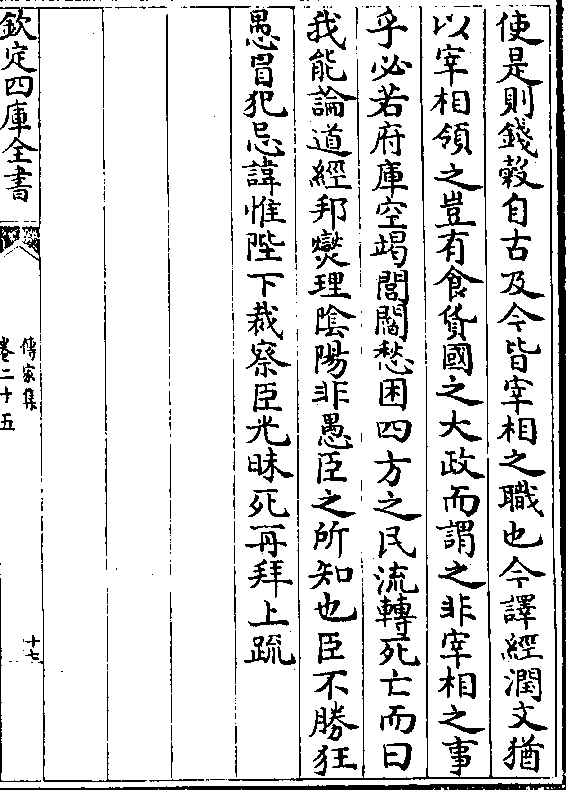 使是則錢穀自古及今皆宰相之職也今譯經潤文猶
以宰相領之豈有食貨國之大政而謂之非宰相之事
乎必若府庫空竭閭閻愁困四方之民流轉死亡而曰
我能論道經邦燮理陰陽非愚臣之所知也臣不勝狂
愚冒犯忌諱惟陛下裁察臣光昧死再拜上疏
欽定四庫全書
傳家集
卷二十五
十七